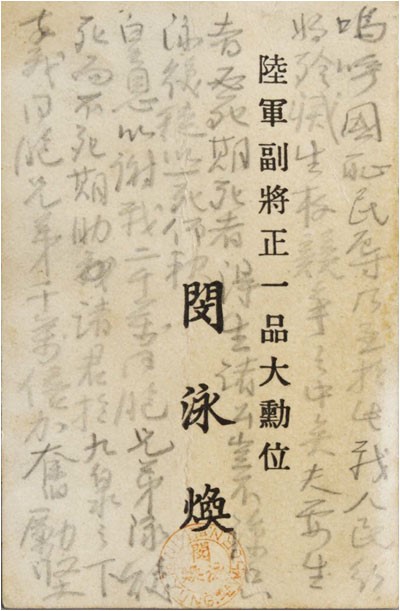 陸軍副將正一品大勳位
閔泳煥
嗚呼國恥民辱乃至此我人民行
將殄滅生存競爭之中矣夫要生
者必死期死者得生諸公豈不諒只
泳煥徒以一死仰報
皇恩以謝我二千萬同胞兄弟泳煥
死而不死期助我諸君於九泉之下
幸我同胞兄弟千萬倍加奮勵堅